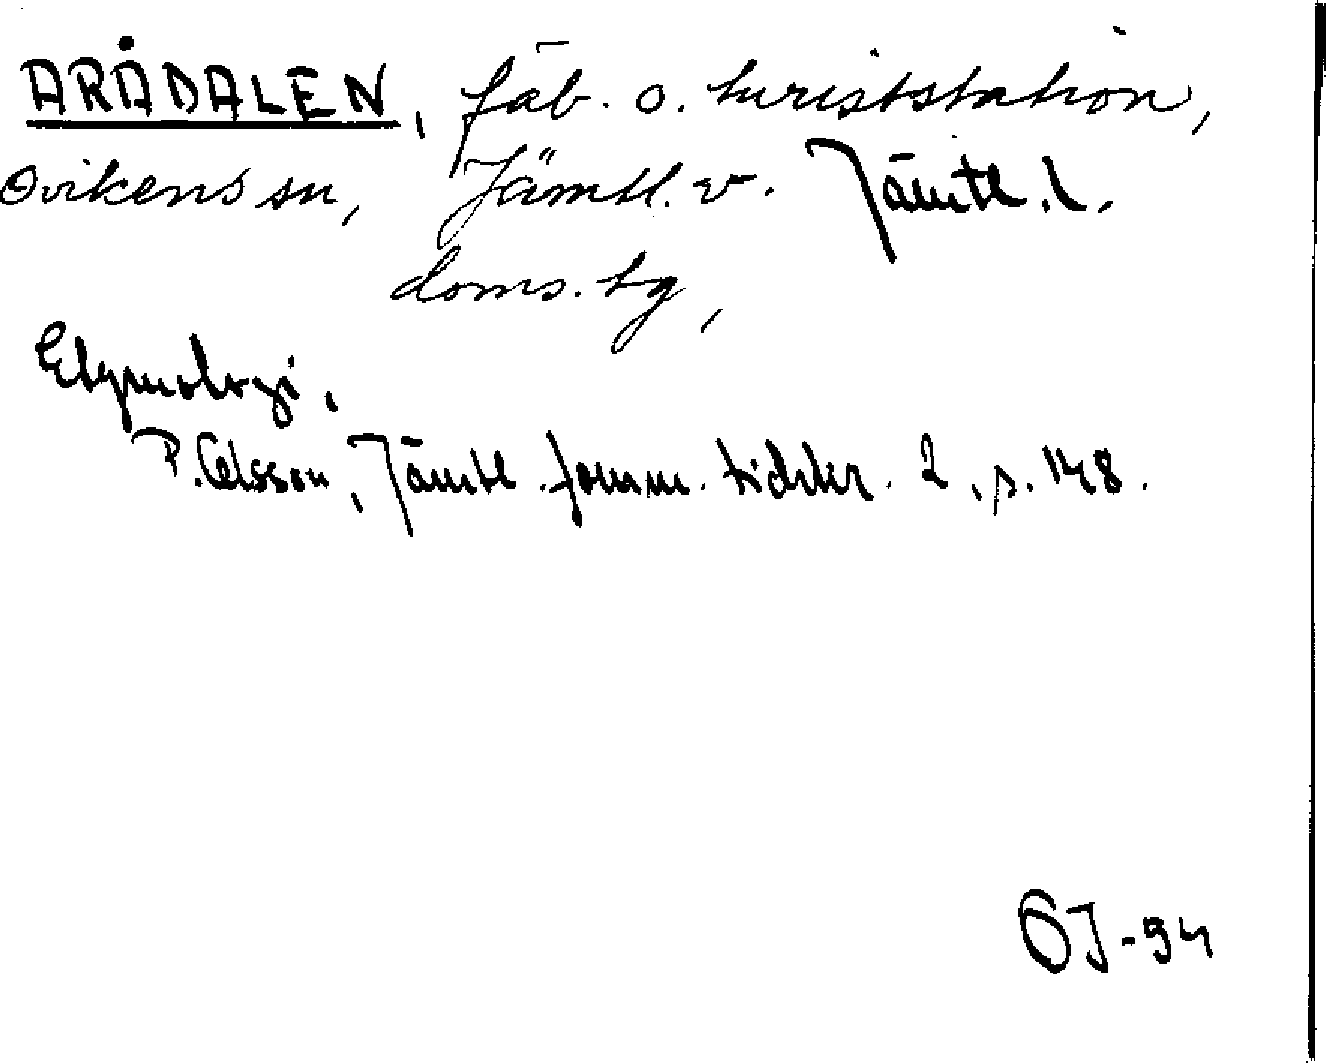 ARÅDALEN, fäb. o. turiststation,
Ovikens sn, Jämtl. v. Jämtl. l.
doms. tg,
Etymologi.
P. Olsson, Jämtl. fornm. tidskr. 2, s. 148.
ÖJ-94